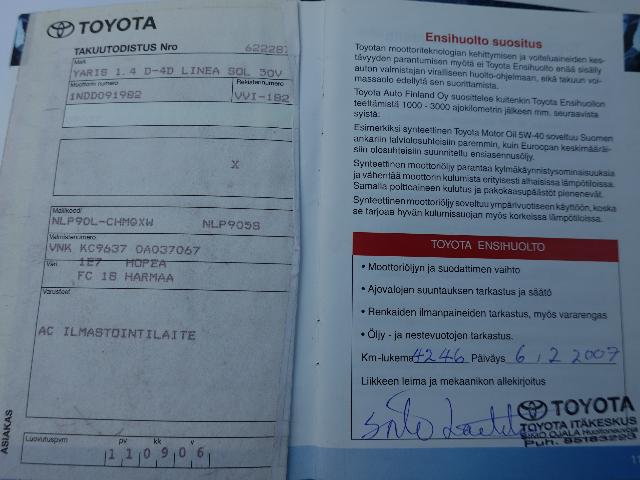 TOYOTA
TAKUUTODISTUS Nro 622287
Malli
YARIS 1.4 D-4D LINEA SOL 50V
Moottorin numero Rekisterinumero
1NDD091982 VVI-182
X
Mallikoodi
NLP90L-CHMQXW NLP905S
Valmistenumero
VNK KC9637 0A037067
Väri 1E7 HOPEA
FC 18 HARMAA
Varusteet
AC ILMASTOINTILAITE
ASIAKAS
Luovutuspvm pv kk v
110906
Ensihuolto suositus
Toyotan moottoriteknologian kehittymisen ja voiteluaineiden kes-
tävyyden parantumisen myötä ei Toyota Ensihuolto enää sisälly
auton valmistajan viralliseen huolto-ohjelmaan, eikä takuun voi-
massaolo edellytä sen suorittamista.
Toyota Auto Finland Oy suosittelee kuitenkin Toyota Ensihuollon
teettämistä 1000 - 3000 ajokilometrin jälkeen mm. seuraavista
syistä:
Esimerkiksi synteettinen Toyota Motor Oil 5W-40 soveltuu Suomen
ankariin talviolosuhteisiin paremmin, kuin Euroopan keskimääräi-
siin olosuhteisiin suunniteltu ensiasennusöljy.
Synteettinen moottoriöljy parantaa kylmäkäynnistysominaisuuksia
ja vähentää moottorin kulumista erityisesti alhaisissa lämpötiloissa.
Samalla polttoaineen kulutus ja pakokaasupäästöt pienenevät.
Synteettinen moottoriöljy soveltuu ympärivuotiseen käyttöön, koska
se tarjoaa hyvän kulumissuojan myös korkeissa lämpötiloissa.
TOYOTA ENSIHUOLTO
• Moottoriöljyn ja suodattimen vaihto
• Ajovalojen suuntauksen tarkastus ja säätö
• Renkaiden ilmanpaineiden tarkastus, myös vararengas
• Öljy - ja nestevuotojen tarkastus.
Km-lukema 4246 Päiväys 6.2 2007
Liikkeen leima ja mekaanikon allekirjoitus
TOYOTA
TOYOTA ITÄKESKUS
SIMO OJALA Huoltoneuvoja
Puh. 85183223
11